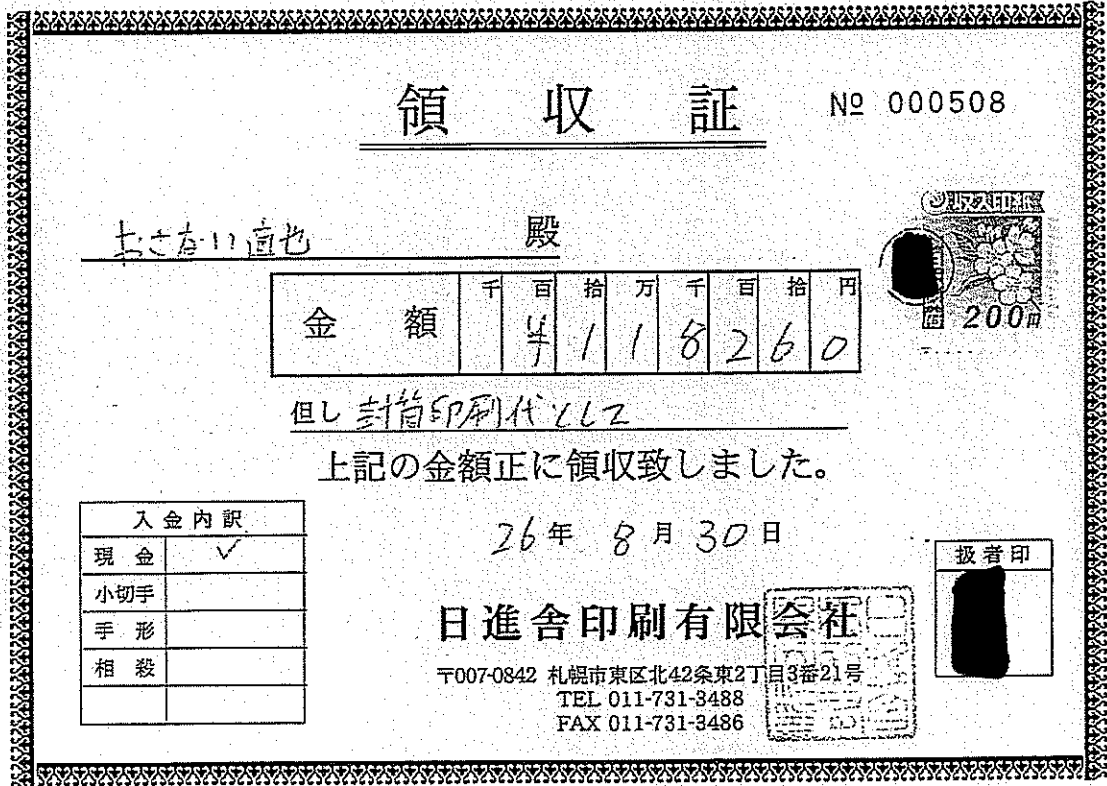 領収証
№ 000508
おさない直也 殿
収入印紙
200円
金額 千 百 拾 万 千 百 拾 円
¥ 1 1 8 2 6 0
但し 封筒印刷代として
上記の金額正に領収致しました。
26年 8月 30日
入金内訳
現金 ✓
小切手
手形
相殺
扱者印
日進舎印刷有限会社
〒007-0842 札幌市東区北42条東2丁目3番21号
TEL 011-731-3488
FAX 011-731-3486